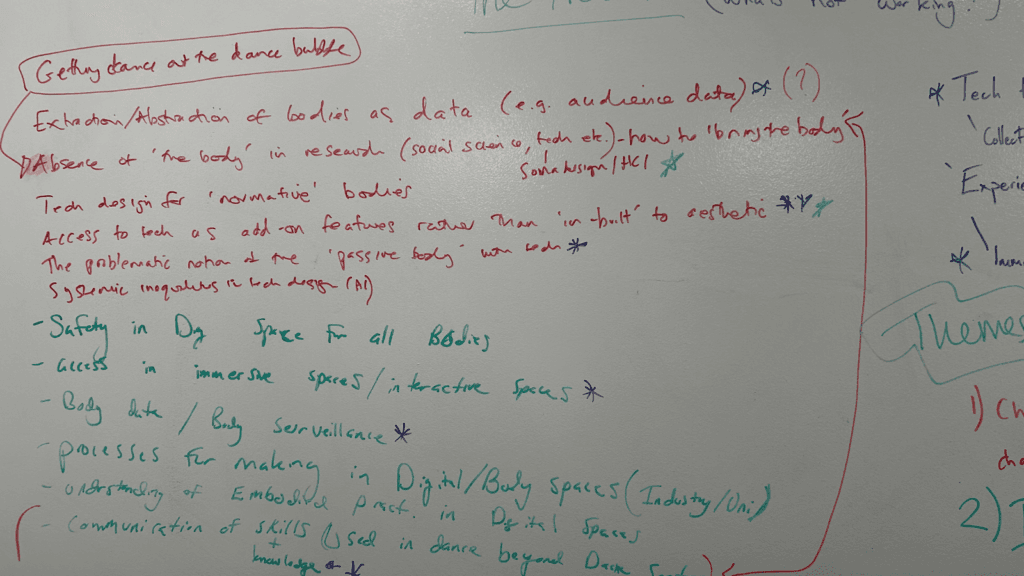 (What's not working?)
Getting dance out the dance bubble
Extraction/Abstraction of bodies as data (e.g. audience data) * (?)
Absence of 'the body' in research (social science, tech etc.) - how to 'bring the body'
Somadesign/HCI *
Tech design for 'normative' bodies
Access to tech as add-on features rather than 'in-built' to aesthetic * * *
The problematic notion of the 'passive body' with tech *
Systemic inequalities in tech design (AI)
- Safety in Dig Space for all Bodies
- access in immersive spaces/interactive spaces *
- Body data / Body surveillance *
- processes for making in Digital/Body spaces (Industry/Uni)
- understanding of Embodied Pract. in Digital Spaces
- Communication of skills Used in dance beyond
+
knowledge
* Tech
Collect
* 
Themes
1) Ch
cha
2)